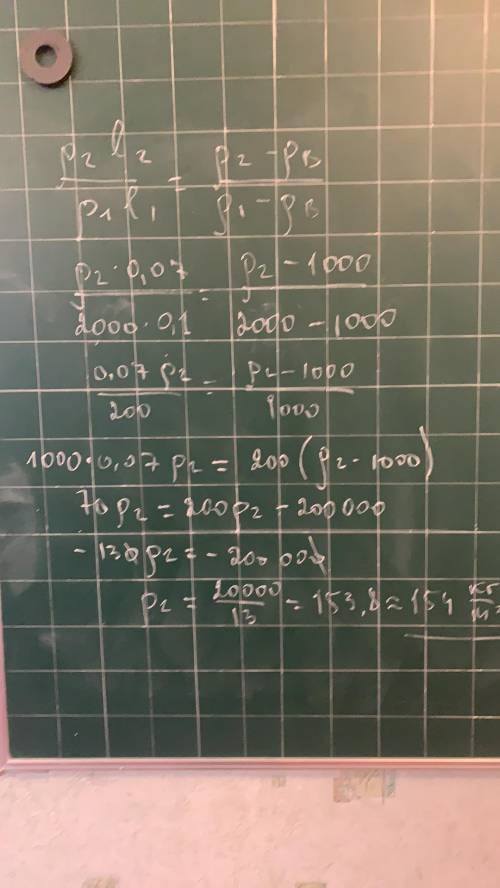 ρ₂ l₂ / ρ₁ l₁ = ρ₂ - ρв / ρ₁ - ρв
ρ₂ · 0,07 / 2000 · 0,1 = ρ₂ - 1000 / 2000 - 1000
0,07 ρ₂ / 200 = ρ₂ - 1000 / 1000
1000 · 0,07 ρ₂ = 200 (ρ₂ - 1000)
70 ρ₂ = 200 ρ₂ - 200 000
- 130 ρ₂ = - 200 000
ρ₂ = 20000 / 13 = 153,8 ≈ 154 кг / м³